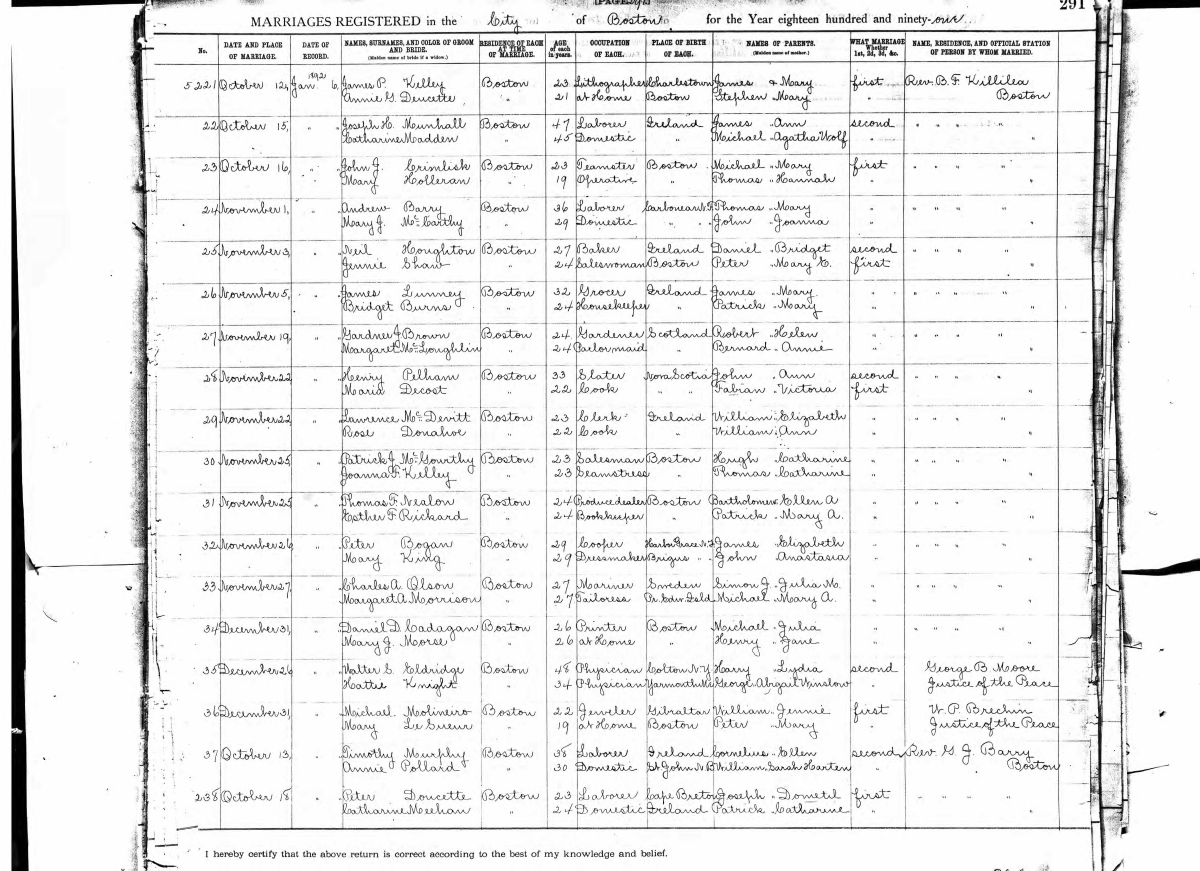 291
MARRIAGES REGISTERED in the City of Boston for the Year eighteen hundred and ninety-one
No. DATE AND PLACE OF MARRIAGE. DATE OF RECORD. NAMES, SURNAMES, AND COLOR OF GROOM AND BRIDE. (Maiden name of bride if a widow.) RESIDENCE OF EACH AT TIME OF MARRIAGE. AGE of each in years. OCCUPATION OF EACH. PLACE OF BIRTH OF EACH. NAMES OF PARENTS. (Maiden name of mother.) WHAT MARRIAGE Whether 1st, 2d, 3d, &c. NAME, RESIDENCE, AND OFFICIAL STATION OF PERSON BY WHOM MARRIED.
1892
5221 October 12, Jan. 6, James P. Kelley Boston 23 Lithographer Charlestown James & Mary first Rev. B. F. Killilea
Annie G. Deucette " 21 at Home Boston Stephen " Mary " Boston
22 October 15, " Joseph H. Munhall Boston 47 Laborer Ireland James " Ann second " " " "
Catharine Madden " 45 Domestic " Michael " Agatha Wolf " "
23 October 16, " John J. Crimlisk Boston 23 Teamster Boston Michael " Mary first " " " "
Mary Holleran " 19 Operative " Thomas " Hannah " "
24 November 1, " Andrew Barry Boston 36 Laborer Carbonear N.F. Thomas " Mary " " " " "
Mary J. McCarthy " 29 Domestic " " John " Joanna " "
25 November 3, " Neil Houghton Boston 27 Baker Ireland Daniel " Bridget second " " " "
Jennie Shaw " 24 Saleswoman Boston Peter " Mary C. first "
26 November 5, " James Lunney Boston 32 Grocer Ireland James " Mary " " " " "
Bridget Burns " 24 Housekeeper " Patrick " Mary " "
27 November 19, " Gardner J. Brown Boston 24 Gardener Scotland Robert " Helen " " " " "
Margaret McLoughlin " 24 Parlormaid " Bernard " Annie " "
28 November 22 " Henry Pelham Boston 33 Slater Nova Scotia John " Ann second " " " "
Maria Decost " 22 Cook " " Fabian " Victoria first "
29 November 22 " Lawrence McDevitt Boston 23 Clerk Ireland William " Elizabeth " " " " "
Rose Donahoe " 22 Cook " William " Ann " "
30 November 25, " Patrick J. McGourthy Boston 23 Salesman Boston Hugh " Catharine " " " " "
Joanna F. Kelley " 23 Seamstress " Thomas " Catharine " "
31 November 25 " Thomas F. Nealon Boston 24 Produce dealer Boston Bartholomew " Ellen A " " " " "
Esther F. Rickard " 24 Bookkeeper " Patrick " Mary A. " "
32 November 26 " Peter Bogan Boston 29 Cooper Harbor Grace N.F. James " Elizabeth " " " " "
Mary King " 29 Dressmaker Brigus " " John " Anastasia " "
33 November 27, " Charles A. Olson Boston 27 Mariner Sweden Simon J. " Julia M. " " " " "
Margaret A. Morrison " 27 Tailoress Pr. Edw. Isld Michael " Mary A. " "
34 December 31, " Daniel D. Cadagan Boston 26 Printer Boston Michael " Julia " " " " "
Mary J. Morse " 26 at Home " Henry " Jane " "
35 December 26 " Walter S. Eldridge Boston 48 Physician Colton N.Y. Harry " Lydia second George B. Moore
Hattie Knight " 34 Physician Yarmouth Me George " Abigail Winslow " Justice of the Peace
36 December 31, " Michael Molineiro Boston 22 Jeweler Gibraltar William " Jennie first W. P. Brechin
Mary Le Sueur " 19 at Home Boston Peter " Mary " Justice of the Peace
37 October 13, " Timothy Murphy Boston 38 Laborer Ireland Cornelius " Ellen second Rev. G. J. Barry
Annie Pollard " 30 Domestic St John N.B. William " Sarah Harten " Boston
238 October 18. " Peter Doucette Boston 23 Laborer Cape Breton Joseph " Dometil first " " " "
Catharine Meehan " 24 Domestic Ireland Patrick " Catharine " "
I hereby certify that the above return is correct according to the best of my knowledge and belief.